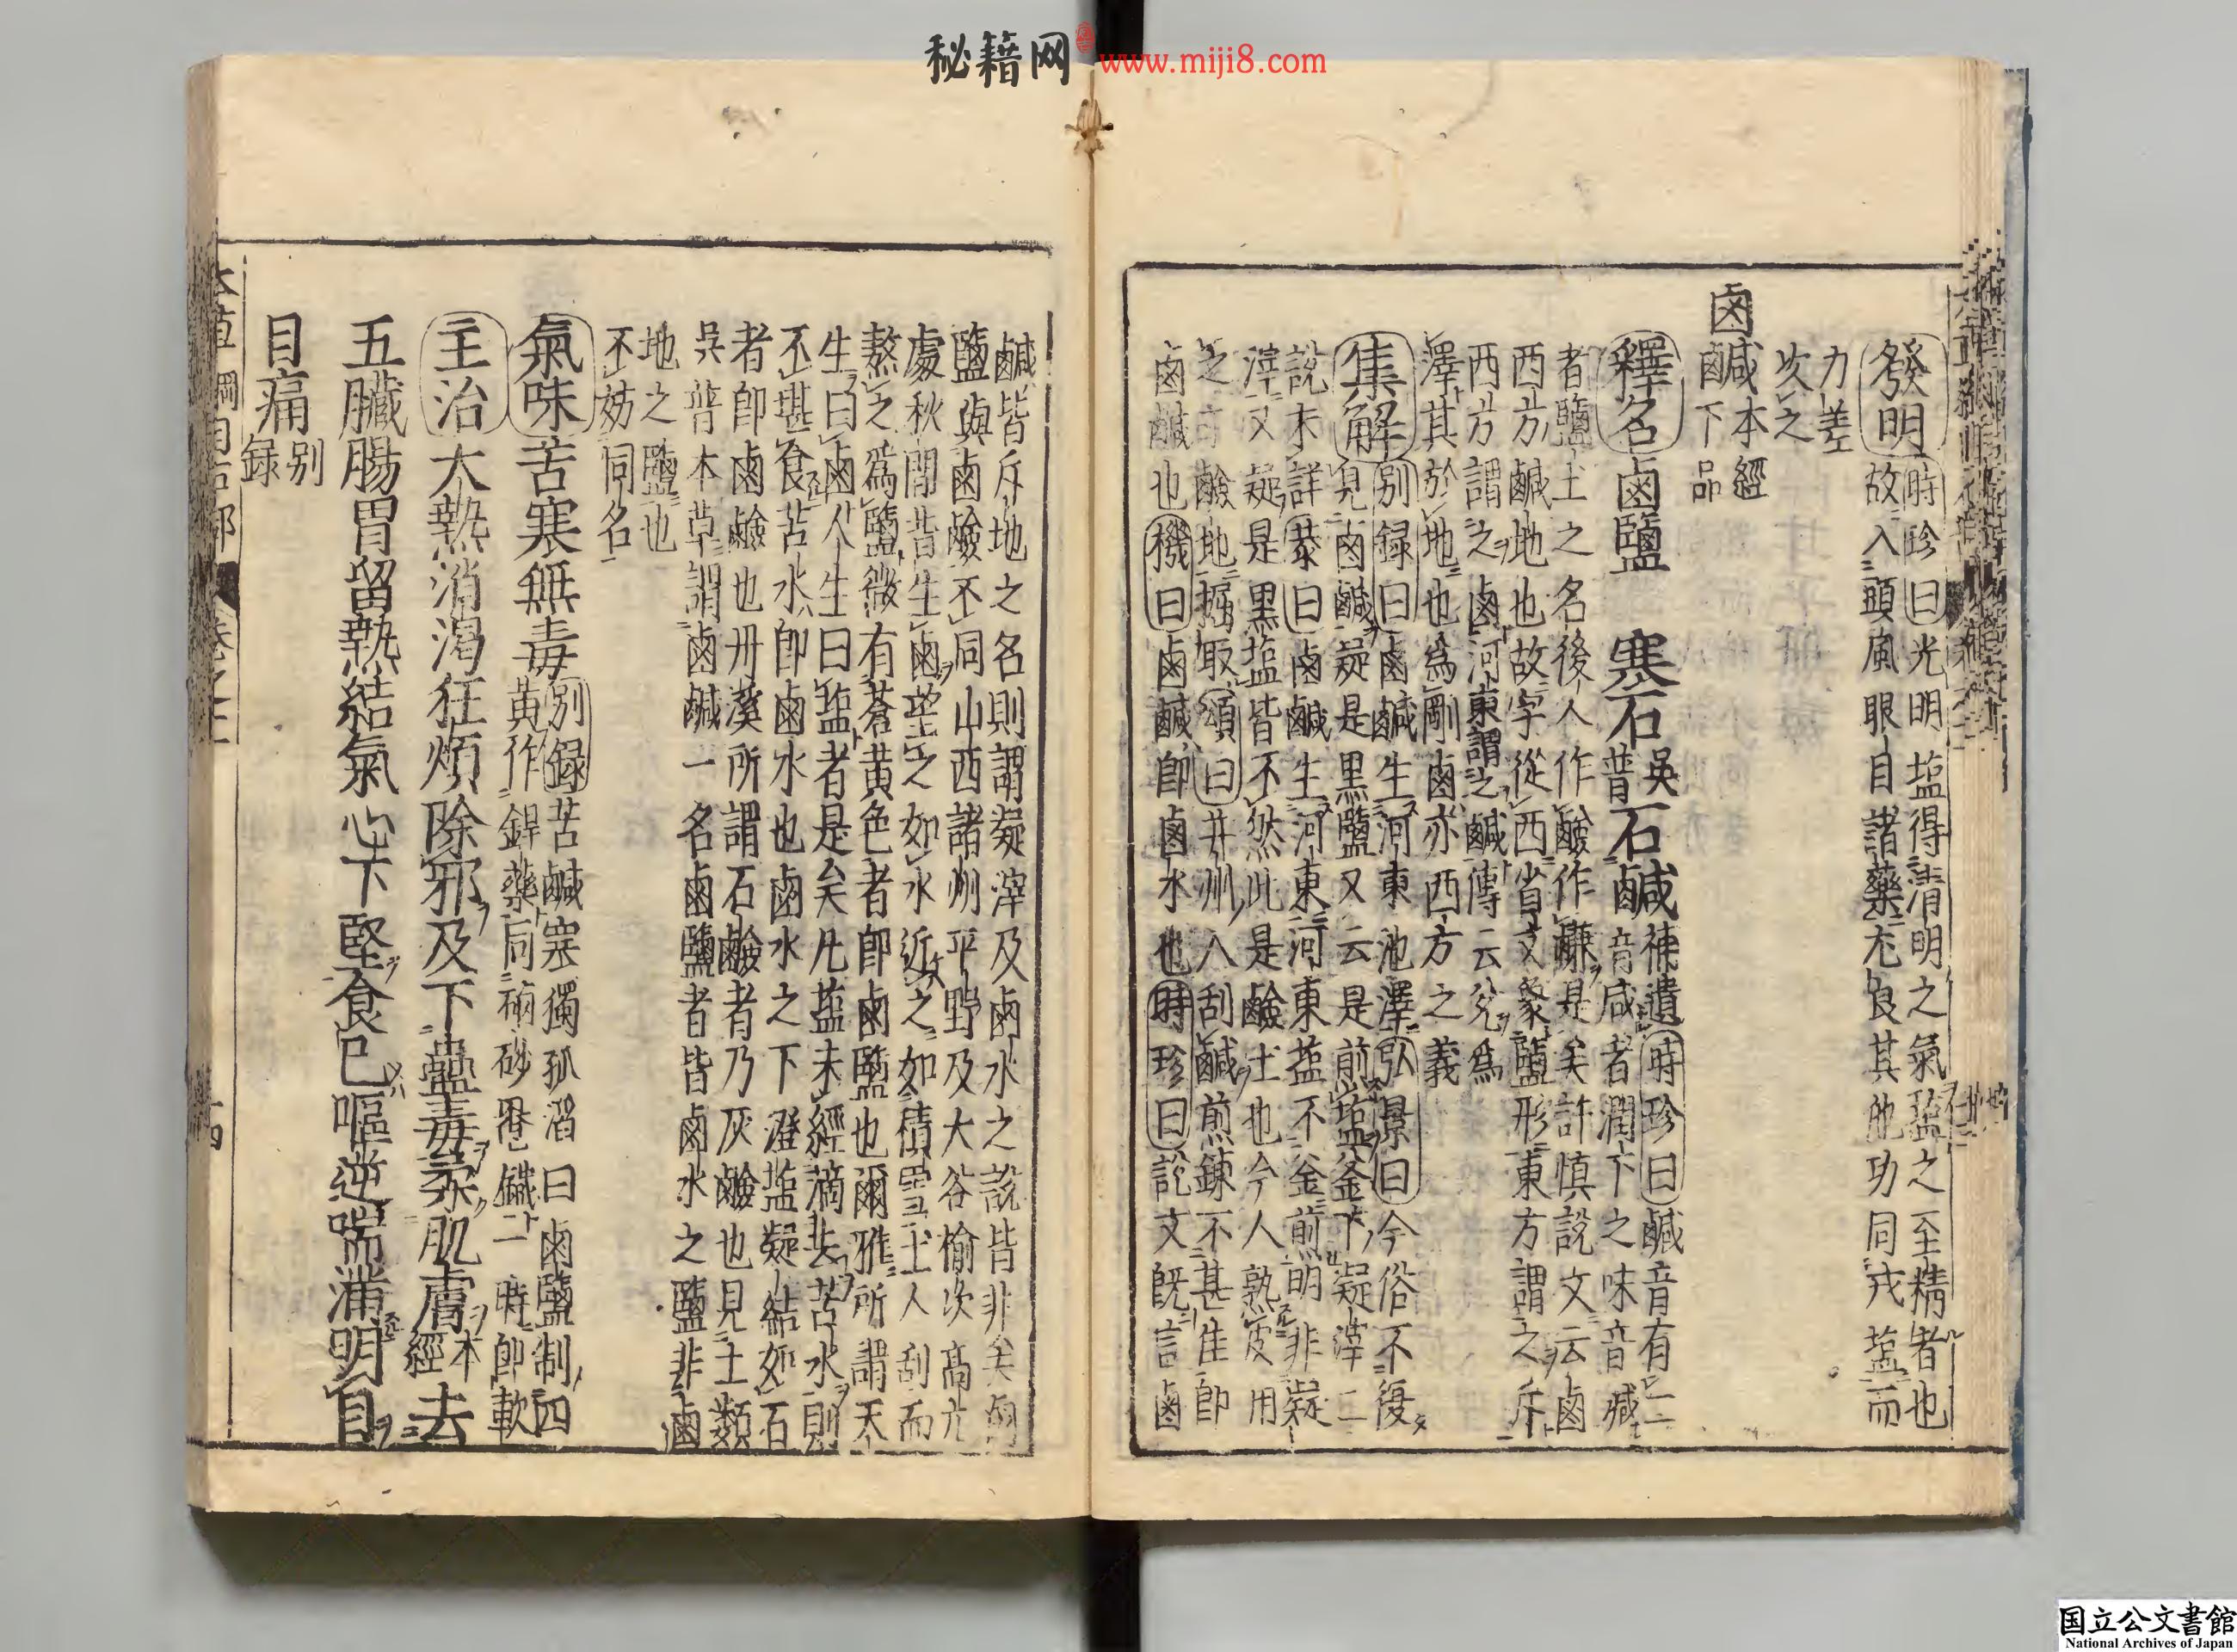 秘籍网 www.miji8.com
發明時珍曰光明塩得清明之氣塩之至精者也
故入頭風眼目諸藥尤良其他功同戎塩而
力差
次之
鹵鹹本經
鹵下品
釋名鹵鹽 寒石吳普石鹹補遺時珍曰鹹音有二
音咸者潤下之味音
者鹽土之名後人作鹼作鹻是矣許慎說文云鹵
西方鹹地也故字從西省文象鹽形東方謂之斥
西方謂之鹵河東謂之鹹傳云兌為
澤其於地也為剛鹵亦西方之義
集解别録曰鹵鹹生河東池澤弘景曰今俗不復
見鹵鹹疑是黒鹽又云是煎塩釜下凝滓二
說未詳恭曰鹵鹹生河東河東塩不釜煎明非凝
滓又疑是黒塩皆不然此是鹼土也今人熟皮用
之方鹼地掘取頌曰并州人刮鹹煎鍊不甚佳即
鹵鹹也機曰鹵鹹即鹵水也時珍曰說文既言鹵
鹹皆斥地之名則謂凝滓及鹵水之說皆非矣鹵
鹽與鹵鹼不同山西諸州平野及大谷榆次高亢
處秋間皆生鹵望之如水近之如積雪土人刮而
熬之為鹽微有蒼黄色者即鹵鹽也爾雅所謂天
生曰鹵人生曰塩者是矣凡塩未經滴去苦水則
不堪食苦水即鹵水也鹵水之下澄塩凝結如石
者即鹵鹼也丹溪所謂石鹼者乃灰鹼也見土類
吳普本草謂鹵鹹一名鹵鹽者皆鹵水之鹽非鹵
地之鹽也
不妨同名
氣味苦寒無毒别録苦鹹寒獨孤滔曰鹵鹽制四
黄作銲藥同硇砂罨鐵一時即軟
主治大熱消渴狂煩除邪及下蠱毒柔肌膚本經去
五臟腸胃留熱結氣心下堅食已嘔逆喘滿明目
目痛别録
本草綱目石部 卷之十一 十四
国立公文書館
National Archives of Japan